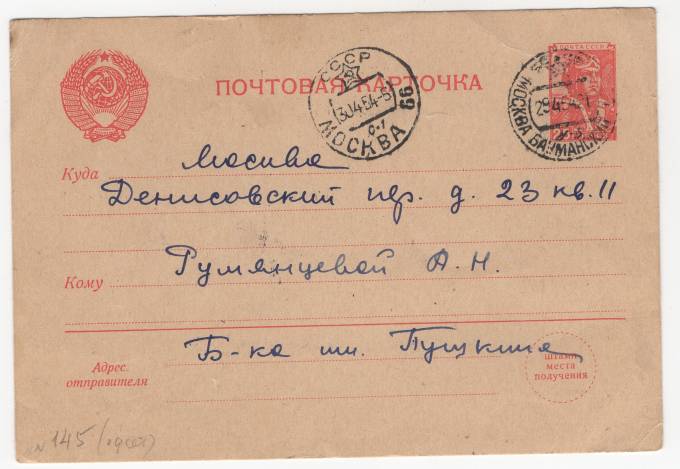 ПОЧТОВАЯ КАРТОЧКА
СССР
30.4.54-5
МОСКВА 99
с-1
ПОЧТА СССР
29.4.54
МОСКВА БАУМАНСКИЙ
Куда Москва
Денисовский пер. д. 23 кв. 11
Кому Румянцевой А. Н.
Б-ка им. Пушкина
Адрес отправителя
штамп
места
получения
N 145